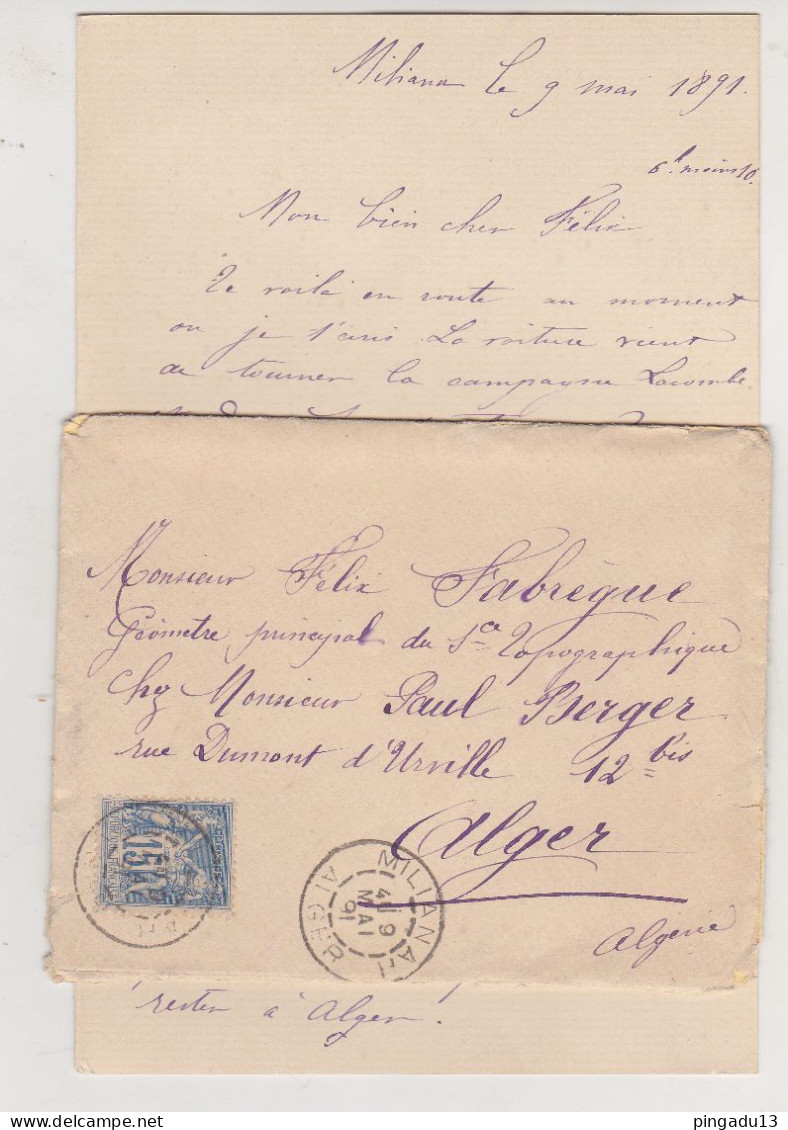 Miliana le 9 mai 1891.
6h moins 10.
Mon bien cher Félix
Te voilà en route au moment
ou je t'écris. La voiture vient
de tourner la campagne Lacombe.
Monsieur Félix Fabrègue
Géomètre principal du Sce Topographique
Chez Monsieur Paul Berger
rue Dumont d'Urville 12 bis
Alger
Algerie
15
MILIANA
4E 9
MAI
91
ALGER
rester à Alger!
pingadu13